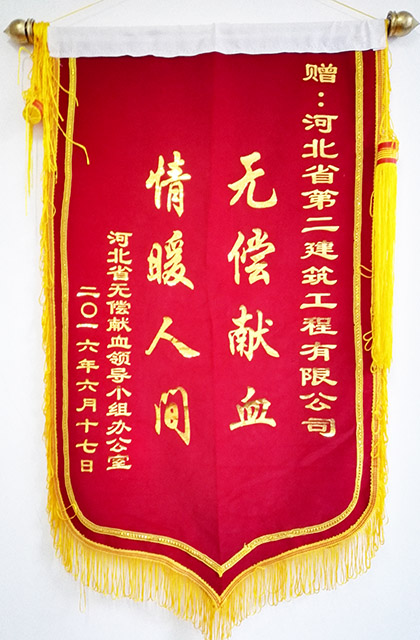 赠：河北省第二建筑工程有限公司
无偿献血
情暖人间
河北省无偿献血领导小组办公室
二〇一六年六月十七日